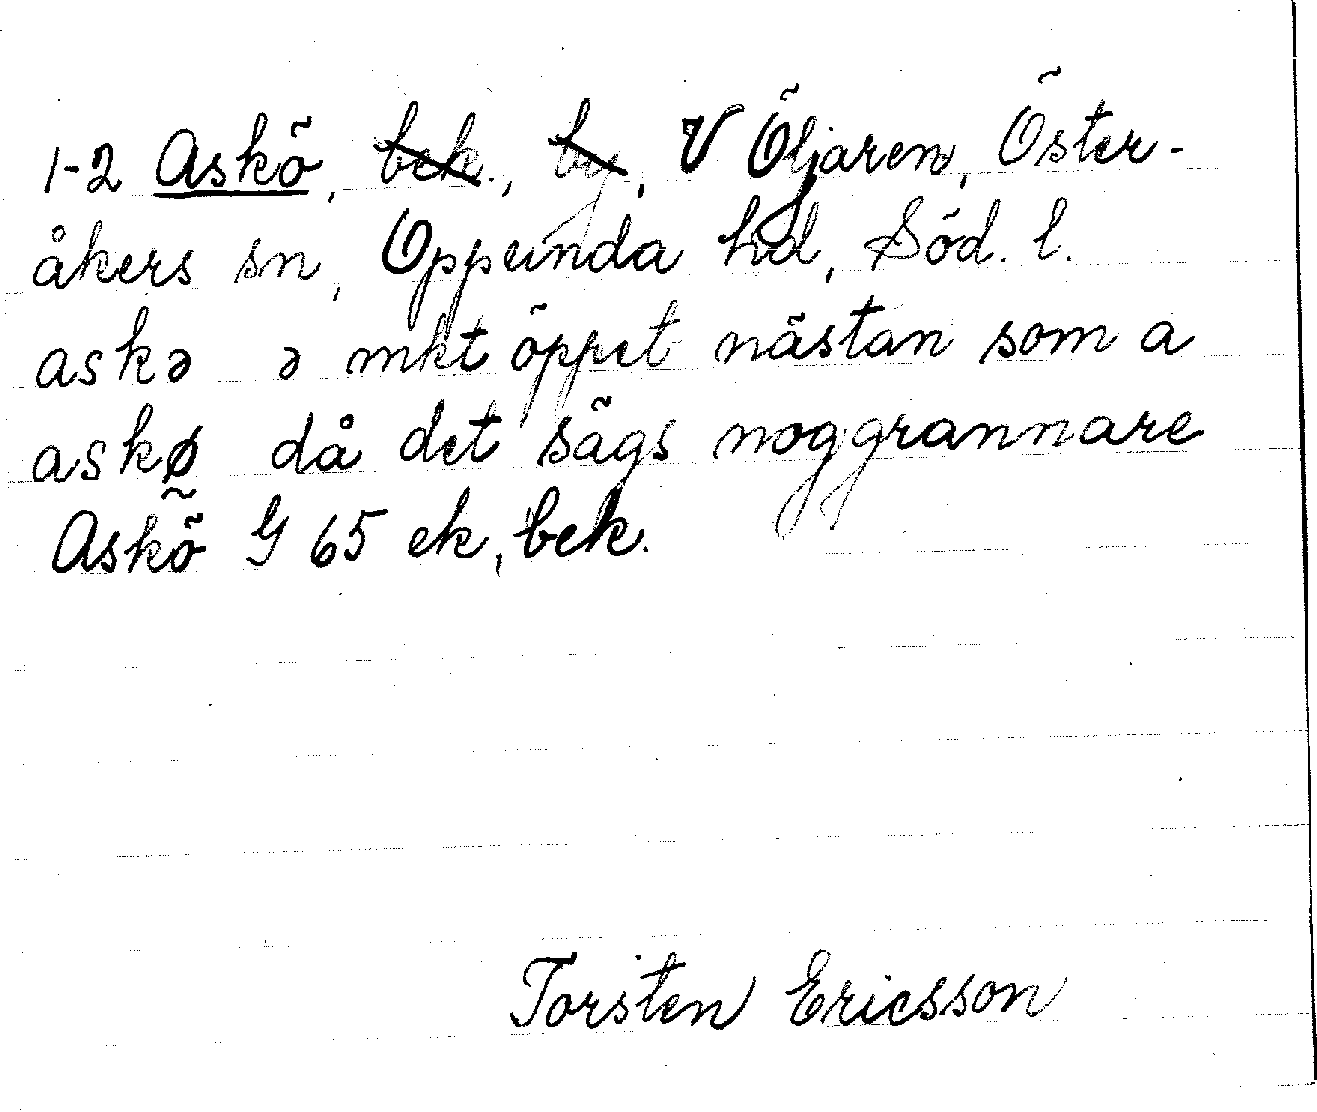 1-2 Askö, bek., by, V Öljaren, Öster-
åkers sn, Oppunda hd, Söd. l.
askə ə mkt öppet nästan som a
askø då det sägs noggrannare
Askö G 65 ek, bek.
Torsten Ericsson